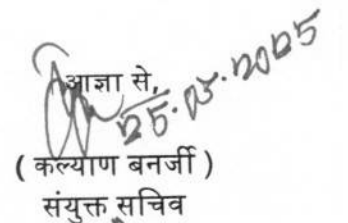 आज्ञा से,
25.05.2025
( कल्याण बनर्जी )
संयुक्त सचिव